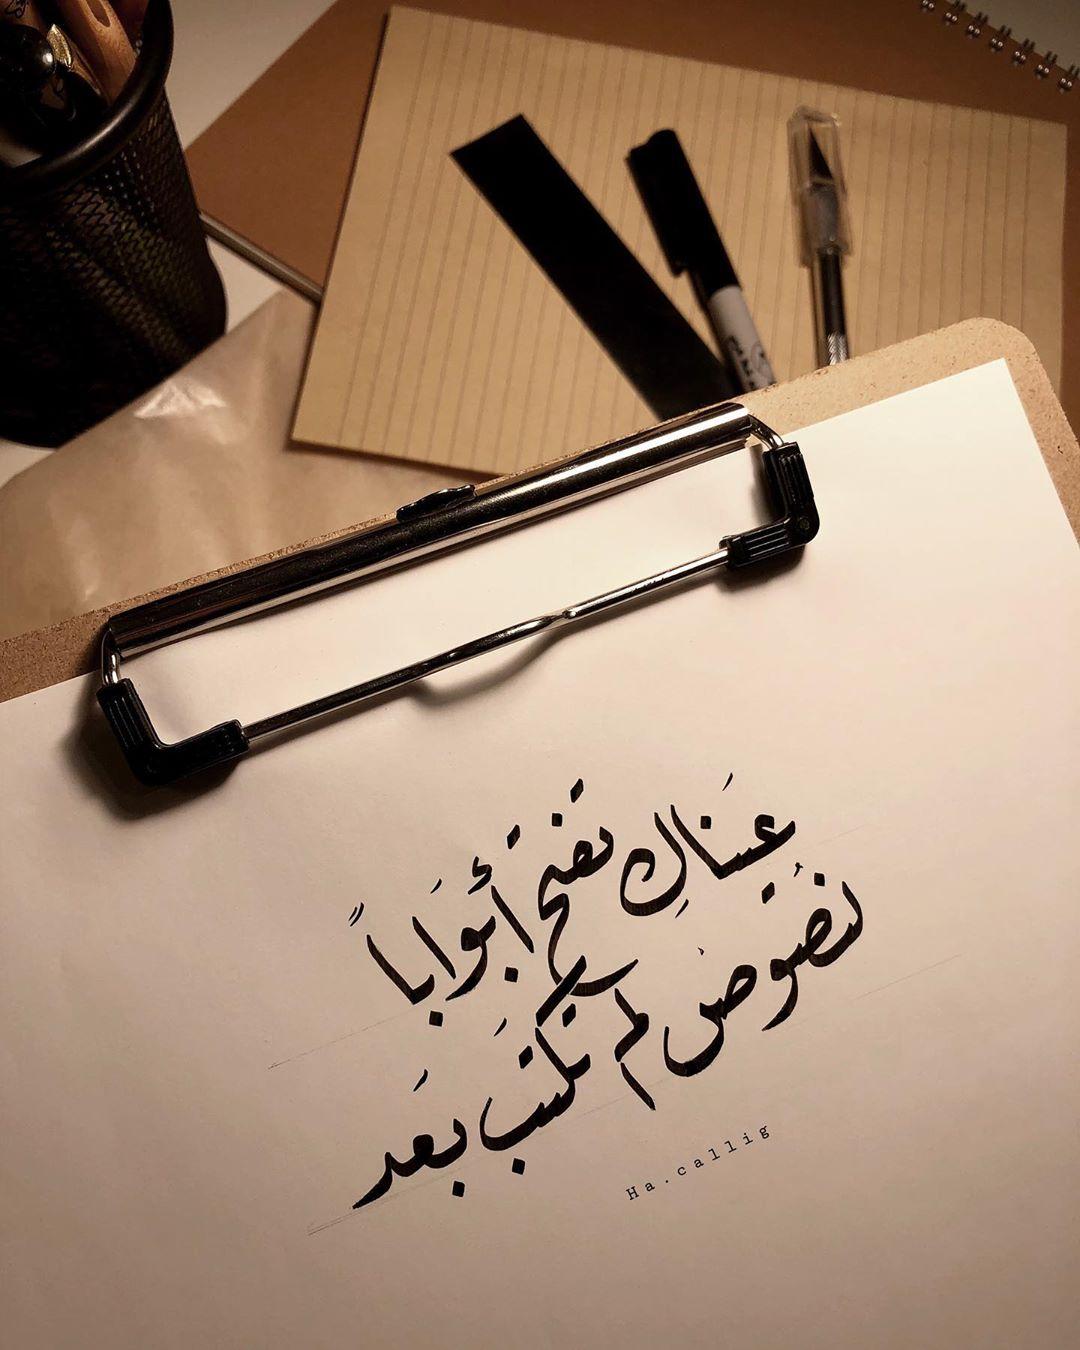 عَيناكِ تفتحُ أبوَاباً
لنصُوصٍ لم تُكتَب بَعد
Ha.callig